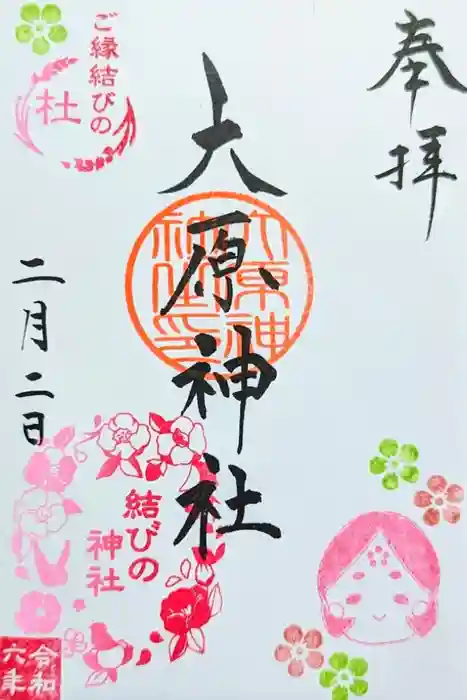 奉拝
大原神社
大原神社印
ご縁結びの
杜
二月二日
結びの
神社
令和
六年